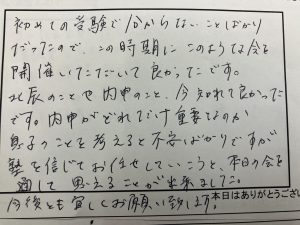 初めての受験で分からないことばかり
だったので、この時期にこのような会を
開催いただいて良かったです。
北辰のことや内申のこと、今知れて良かった
です。内申がどれだけ重要なのか
息子のことを考えると不安ばかりですが
塾を信じてお任せしていこうと、本日の会を
通して思えることが出来ました。
今後とも宜しくお願い致します。
本日はありがとうござい